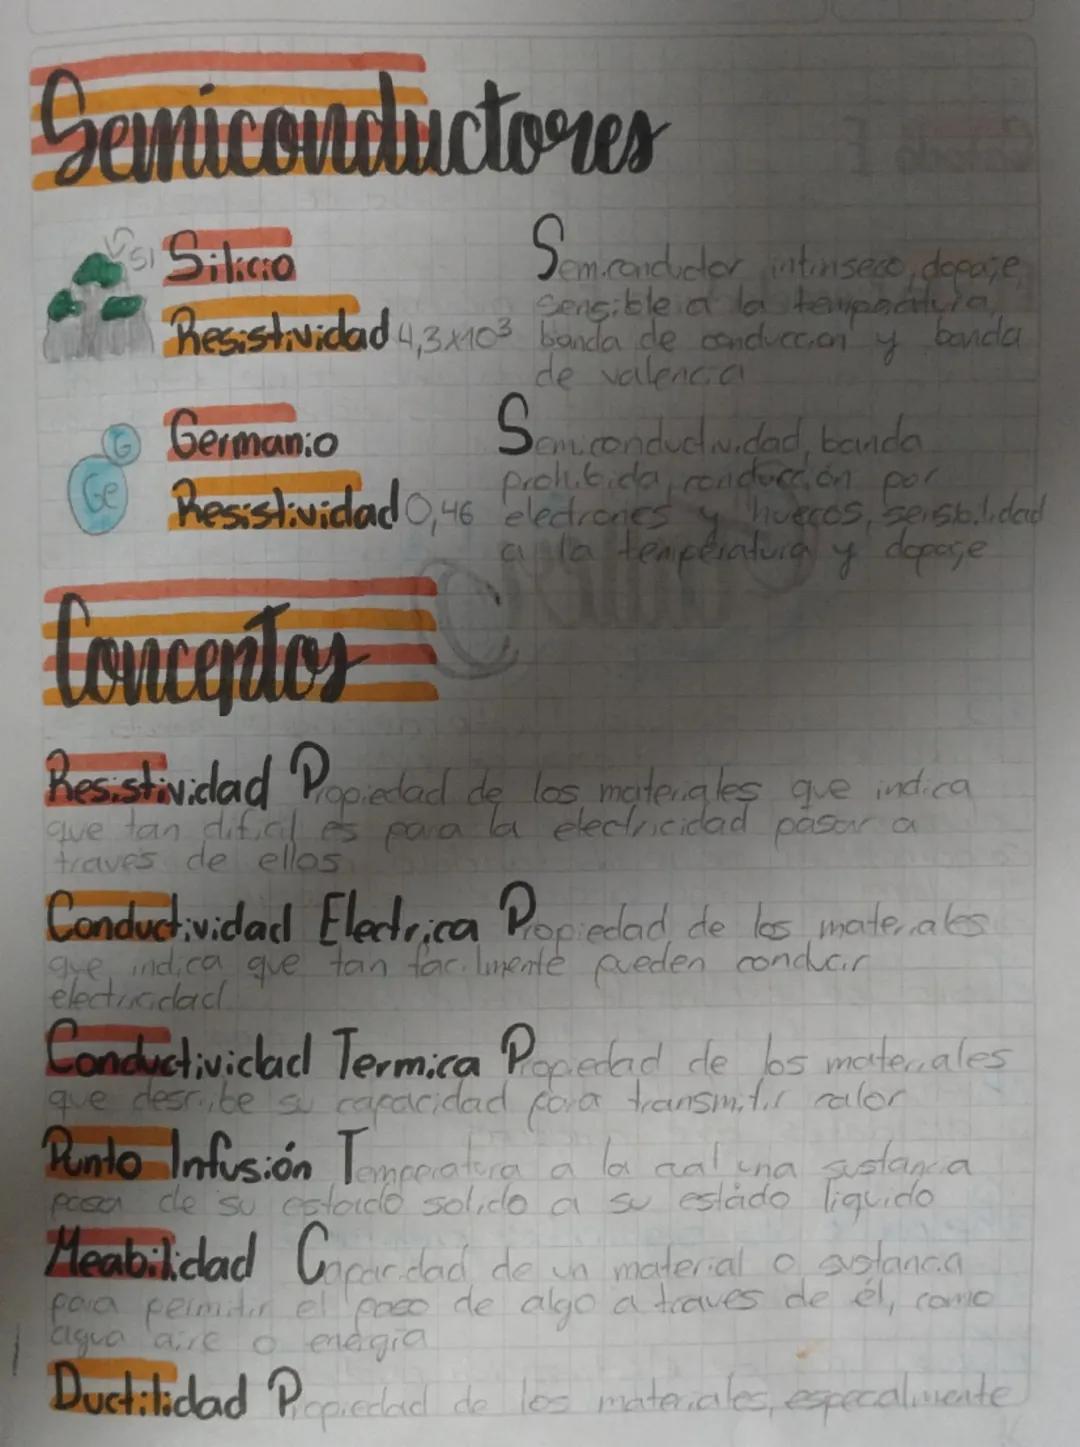 Semiconductores
Si Silicio
Resistividad 4,3x10³
Semiconductor intinseco, dopaje,
sensible a la temperatura,
banda de conduccion y banda
de valencia
G
Ge
Germanio
Resistividad 0,46
Semiconductividad, banda
prohibida, conducción por
electrones y huecos, sensibilidad
a la temperatura y dopaje
Conceptos
Resistividad Propiedad de los materiales que indica
que tan dificil es para la electricidad pasar a
través de ellos
Conductividad Electrica Propiedad de los materiales
que indica que tan facilmente pueden conducir
electricidad.
Conductividad Termica Propiedad de los materiales
que describe su capacidad para transmitir calor
Punto Infusión Temperatura a la cual una sustancia
pasa de su estado solido a su estado liquido
Meabilidad Capacidad de un material o sustancia
para permitir el paso de algo a traves de él, como
agua aire o energia
Ductilidad Propiedad de los materiales, especalmente